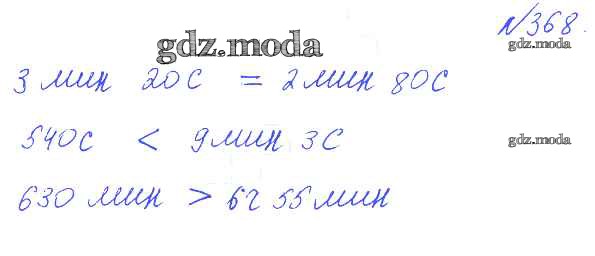 №368.
gdz.moda
gdz.moda
3 мин 20с = 2 мин 80с
540с < 9 мин 3с
gdz.moda
630 мин > 6ч 55 мин